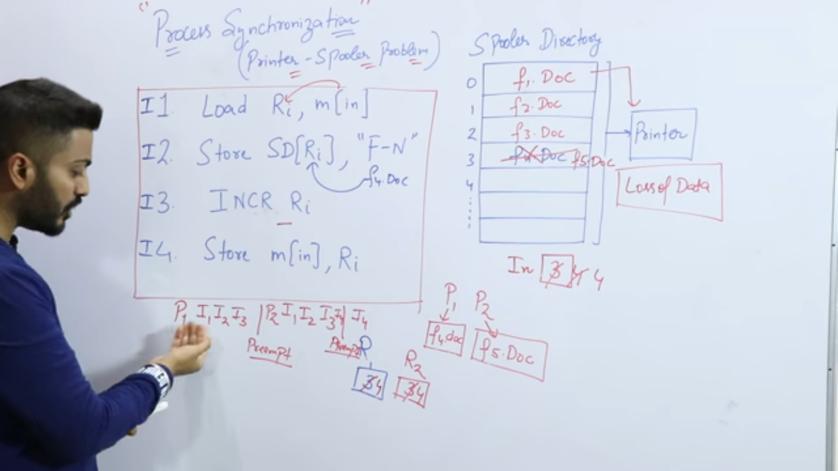 "Process Synchronization"
(Printer-Spooler Problem)
I1. Load Ri, m[in]
I2. Store SD[Ri], "F-N"
f4.Doc
I3. INCR Ri
I4. Store m[in], Ri
P1 I1 I2 I3 | P2 I1 I2 I3 I4 | I4
Preempt Preempt
R1 R2
3 4 3 4
Spooler Directory
0 f1.Doc
1 f2.Doc
2 f3.Doc
3 f4.Doc f5.Doc
4
Printer
Loss of Data
In 3 4 4
P1 P2
f4.doc f5.Doc